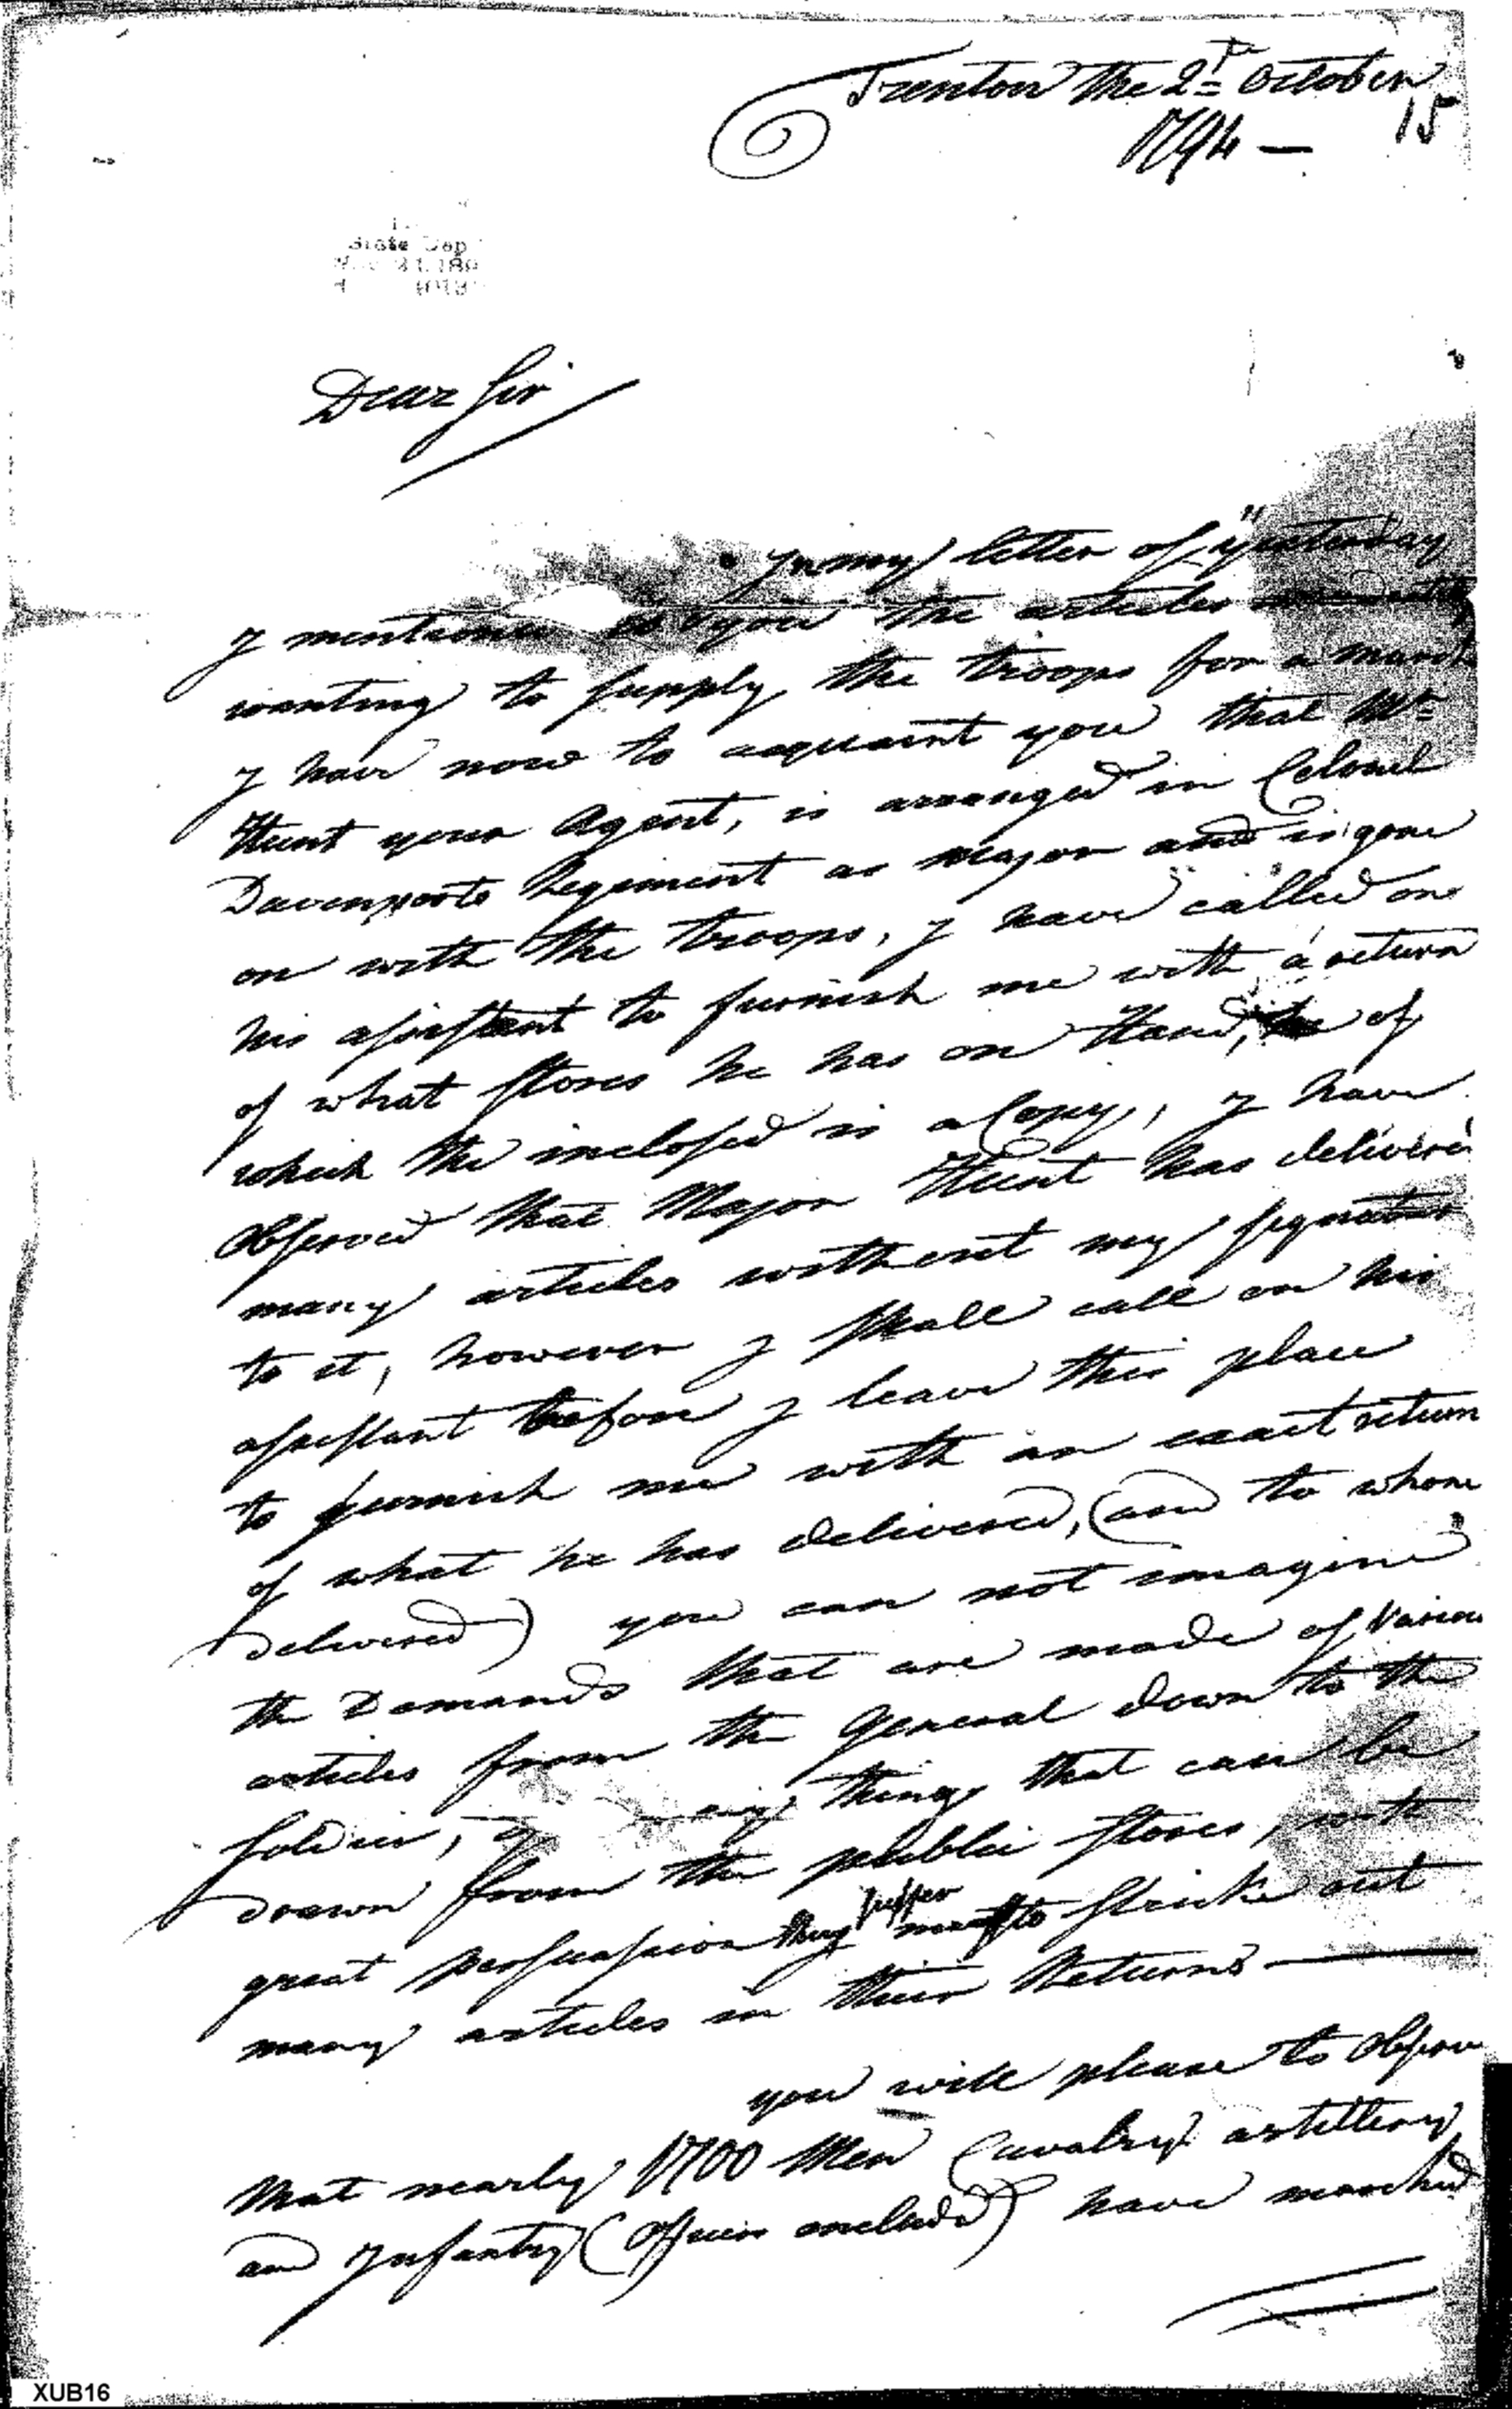 Trenton the 2d October
1794 —
15
State Dep
Dear Sir
In my letter of yesterday
I mentioned to you the articles
wanting to supply the troops for a march
I have now to acquaint you that Mr
Hunt your Agent, is arranged in Colonel
Davenports Regiment as Major and is gone
on with the troops, I have called on
his assistant to furnish me with a return
of what stores he has on Hand, of
which the inclosed is a Copy, I have
observed that Major Hunt has delivered
many articles without my signature
to it, however I shall call on his
assistant before I leave this place
to furnish me with an exact return
of what he has delivered, (and to whom
delivered) you can not imagine
the Demands that are made of Various
articles from the General down to the
soldier, any thing that can be
drawn from the publick stores, with
great persuasion they suffer me to strike out
many articles in their Returns —
you will please to observe
that nearly 1700 Men Cavalry artillery
and Infantry (officers included) have marched
XUB16